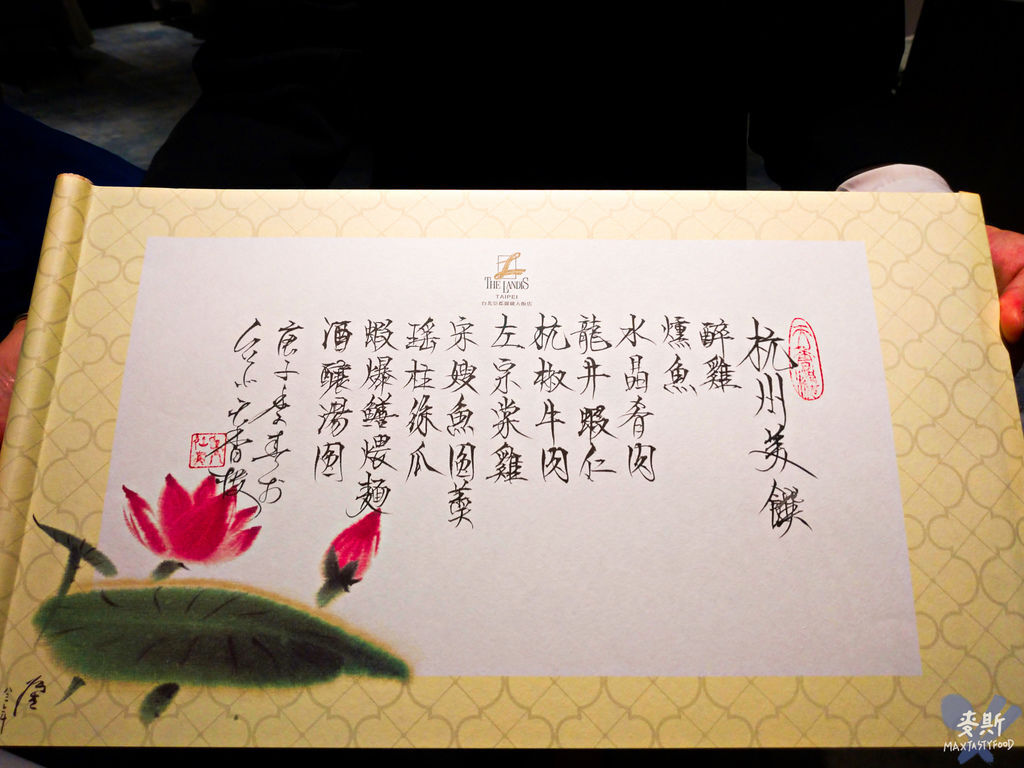 THE LANDIS
TAIPEI
台北亞都麗緻大飯店
天香樓
杭州美饌
醉雞
燻魚
水晶肴肉
龍井蝦仁
杭椒牛肉
左宗棠雞
宋嫂魚圓羹
瑤柱絲瓜
蝦爆鱔煨麵
酒釀湯圓
庚子季春於
台北天香樓
麥斯
MAXTASTYFOOD